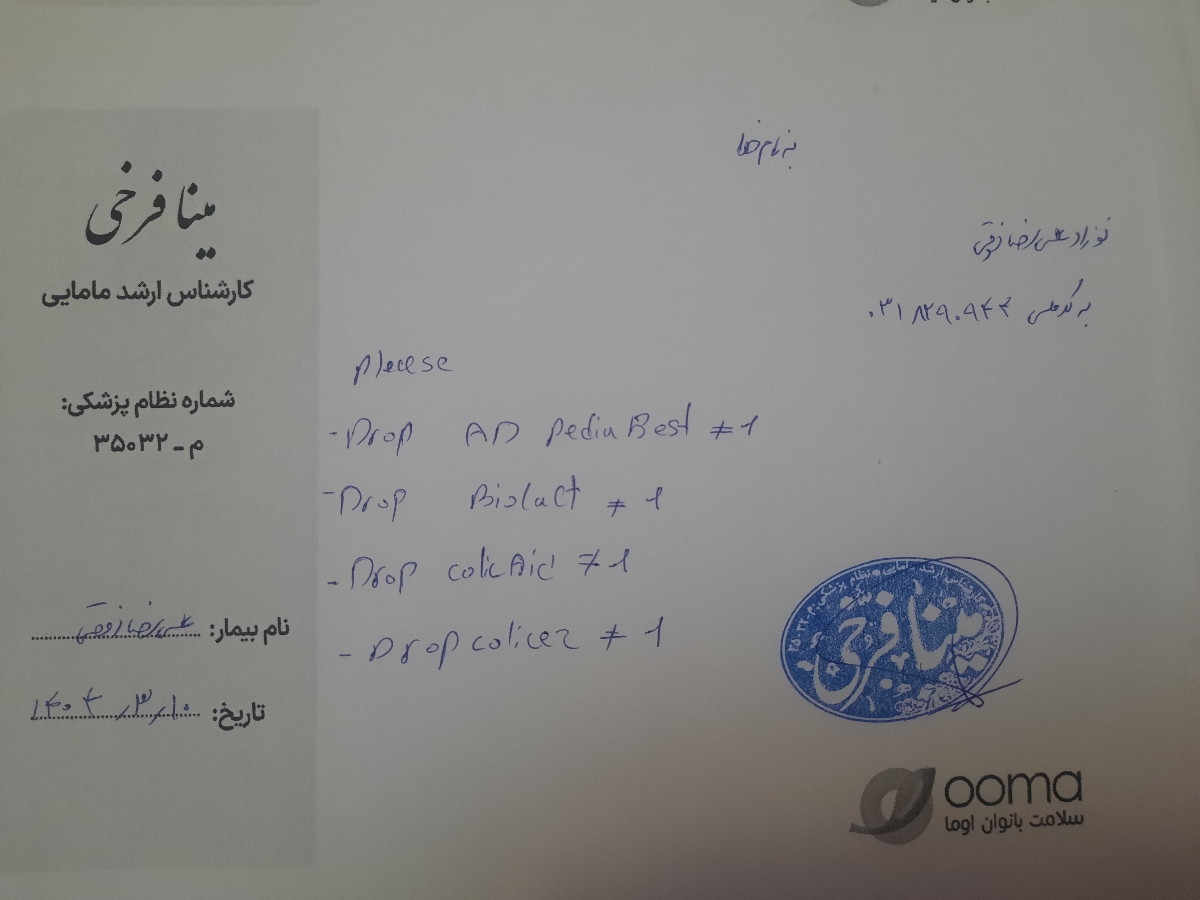 به نام خدا
نوزاد علی رضا ذوقی
به کد ملی ۰۳۱۸۲۹۰۹۴۴
please
- Drop AD PediaBest # 1
- Drop Biolact # 1
- Drop colicAid # 1
- Drop colicez # 1
مینا فرخی
کارشناس ارشد مامایی
شماره نظام پزشکی:
م ـ ۳۵۰۳۲
نام بیمار: علی رضا ذوقی
تاریخ: ۱۴۰۴/۳/۱۰
مینا فرخی
ooma
سلامت بانوان اوما